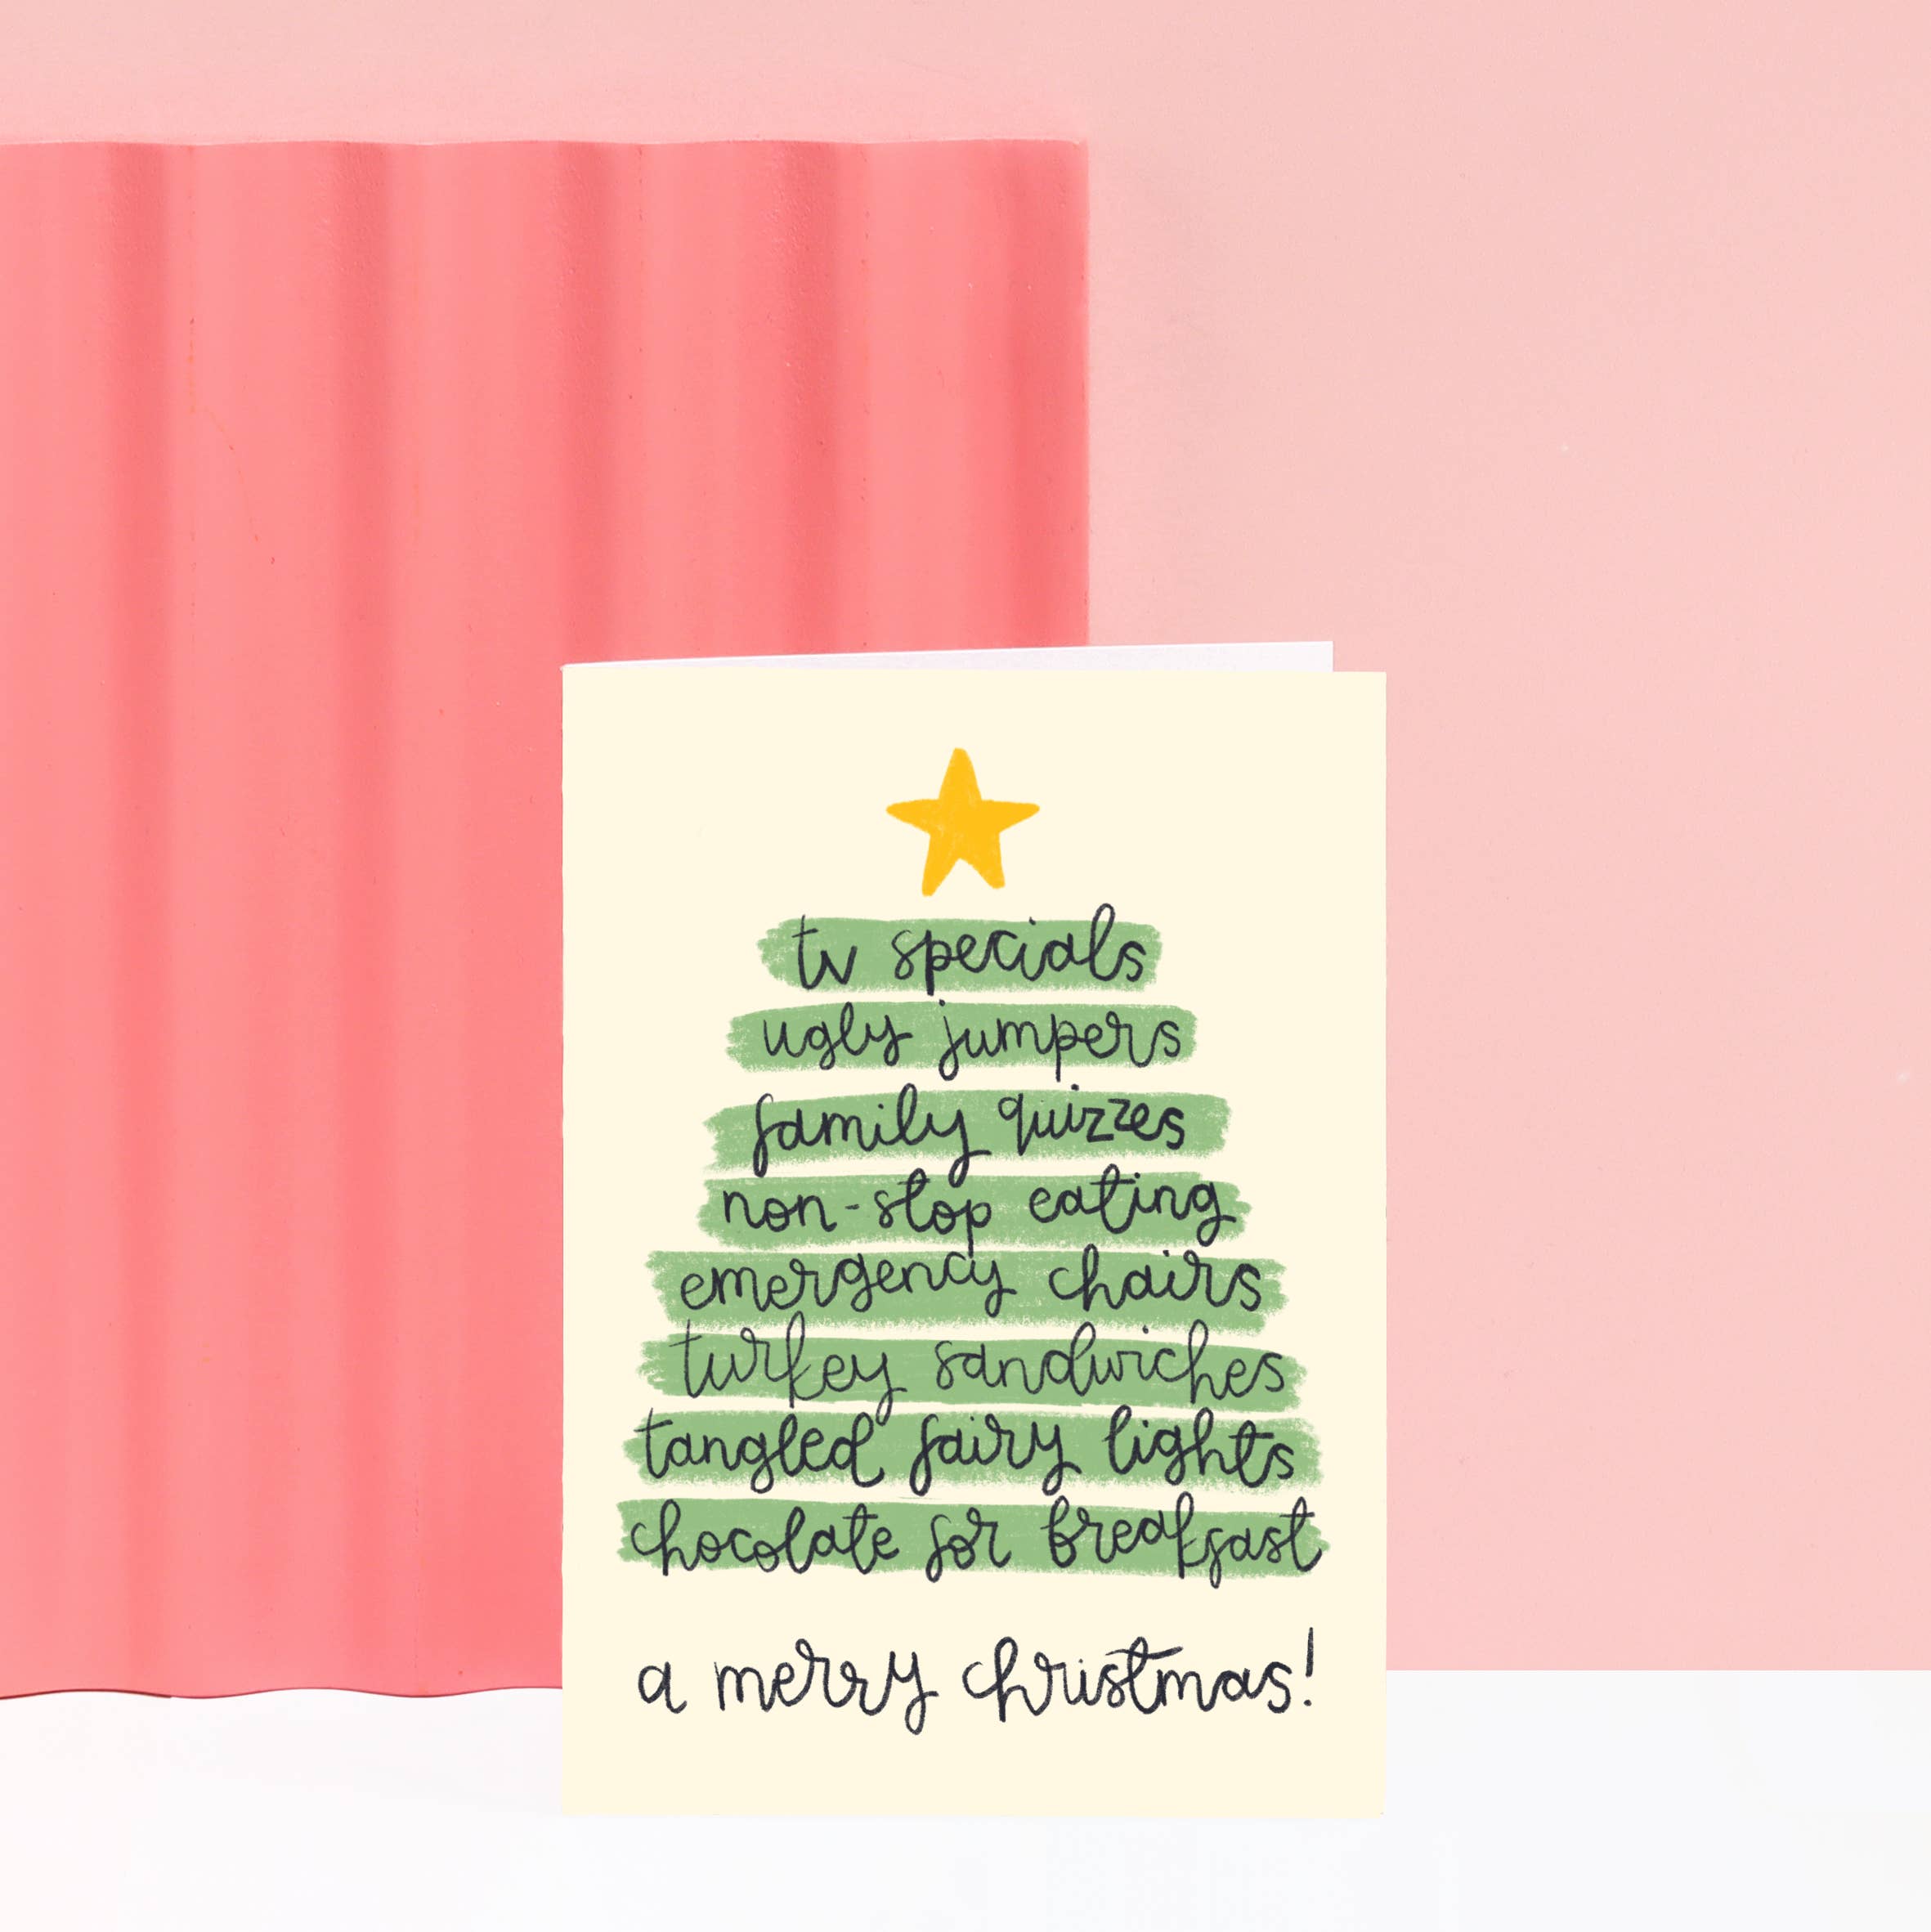 tv specials
ugly jumpers
family quizzes
non-stop eating
emergency chairs
turkey sandwiches
tangled fairy lights
chocolate for breakfast
a merry christmas!